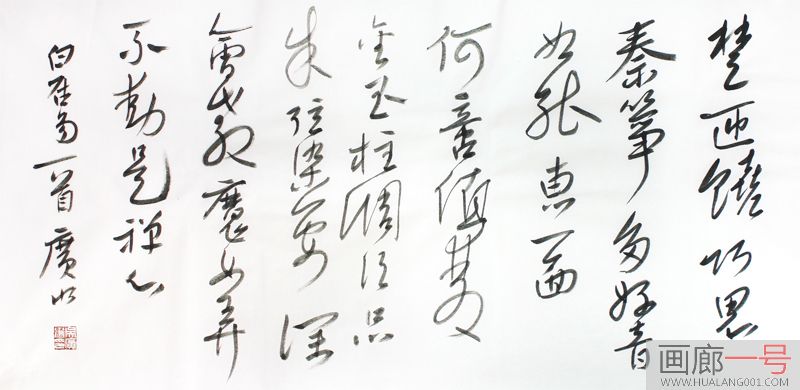 楚匠饒巧思
秦箏多好音
如能惠一面
何啻值雙
金玉柱調須品
朱弦染要深
會教魔女弄
不動是禪心
白居易一首 廣
画廊一号
WWW.HUALANG001.COM